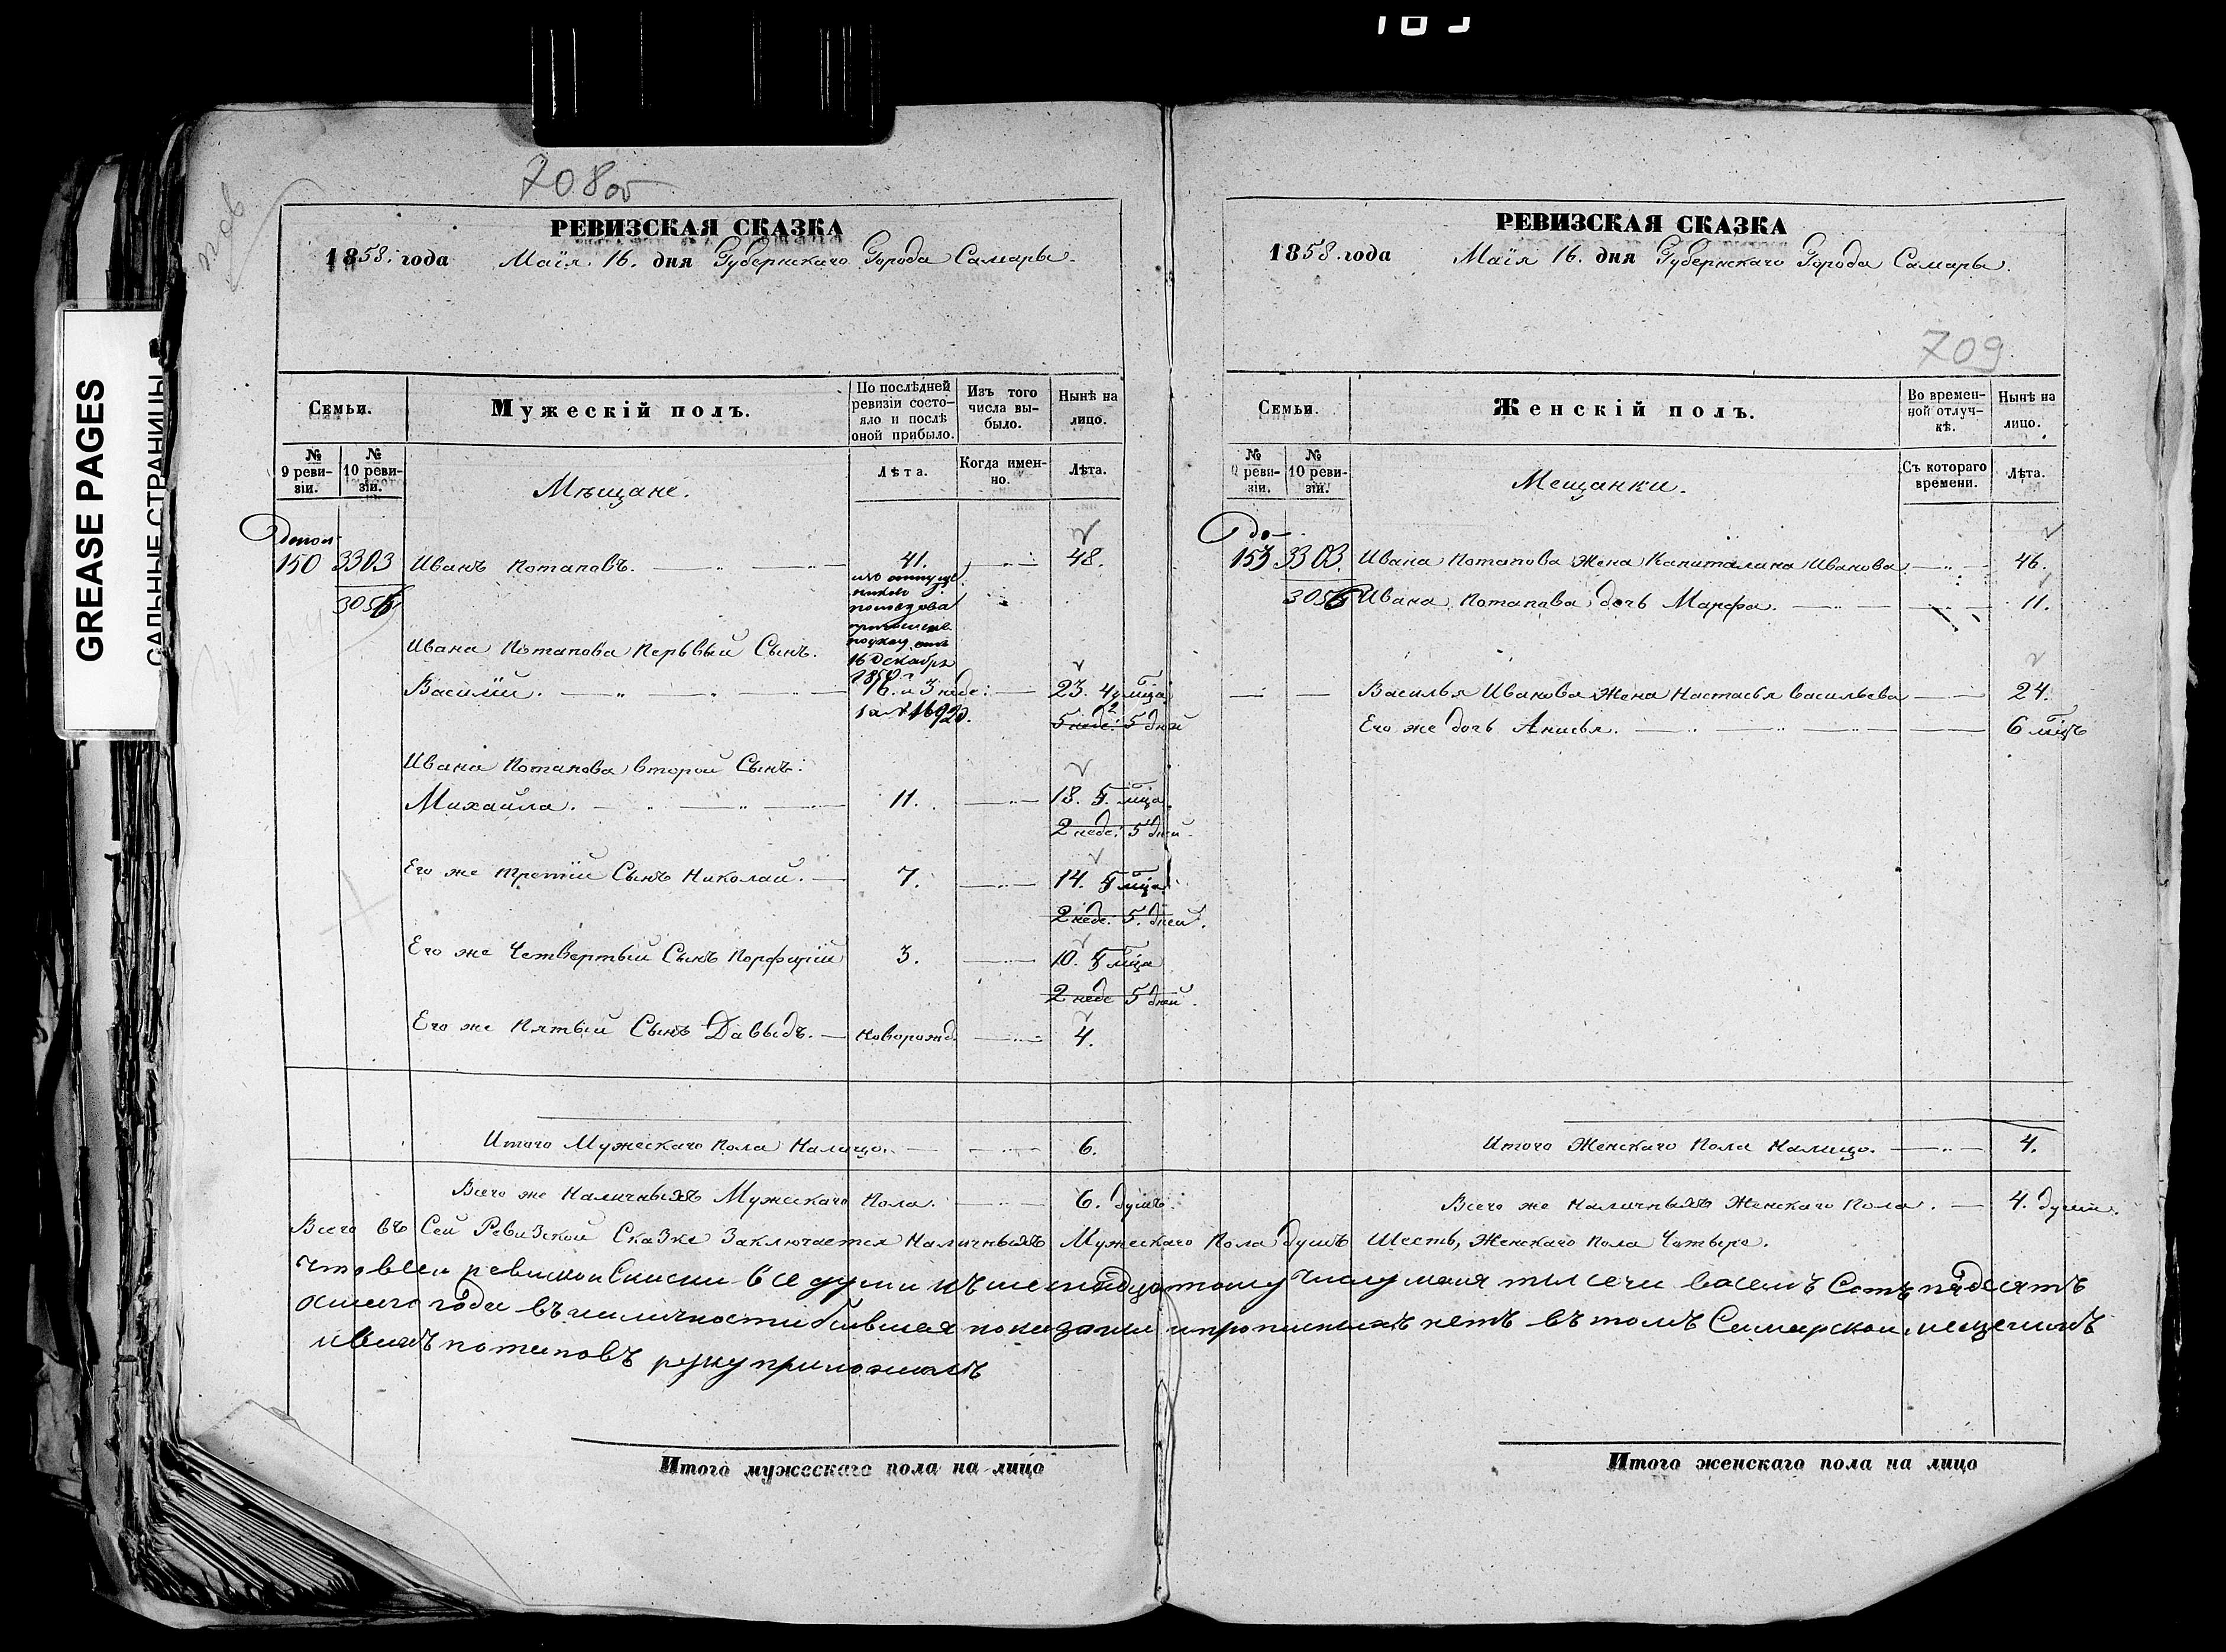 GREASE PAGES
САЛЬНЫЕ СТРАНИЦЫ
708 об
РЕВИЗСКАЯ СКАЗКА
1858. года Маія 16. дня Губернскаго Города Самары.
Семьи.
Мужескій полъ.
По послѣдней ревизіи состо-
яло и послѣ
оной прибыло.
Изъ того
числа вы-
было.
Нынѣ на
лицо.
№
9 реви-
зіи.
№
10 реви-
зіи.
Лѣта.
Когда имен-
но.
Лѣта.
Мѣщане.
Допол
150 3303 Иванъ Потаповъ. 41. 48.
3056
16 Декабря
1850 г
Ивана Потапова Первый Сынъ.
Василій. 16. и 3 неде: 23. 4 м-ца
5 неде: 5 дней
Ивана Потапова второй Сынъ:
Михайла. 11. 18. 5. м-ца.
2 неде: 5 дней.
Его же третій Сынъ Николай. 7. 14. 5 м-ца
2 неде: 5. дней.
Его же Четвертый Сынъ Порфирій 3. 10. 5 м-ца
2 неде 5 дней.
Его же Пятый Сынъ Давыдъ. новорожд. 4.
Итого Мужескаго Пола Налицо. 6.
Всего же Наличныхъ Мужескаго Пола. 6. душъ.
РЕВИЗСКАЯ СКАЗКА
1858. года Маія 16. дня Губернскаго Города Самары.
709
Семьи.
Женскій полъ.
Во времен-
ной отлуч-
кѣ.
Нынѣ на
лицо.
№
9 реви-
зіи.
№
10 реви-
зіи.
Съ котораго
времени.
Лѣта.
Мещанки.
До
153 3303. Ивана Потапова Жена Капиталина Иванова 46.
3056 Ивана Потапова дочь Марфа. 11.
Василья Иванова Жена Настасья Васильева 24.
Его же дочь Анисья. 6 м-цъ
Итого Женскаго Пола Налицо. 4.
Всего же Наличныхъ Женскаго Пола. 4. души.
Всего въ Сей Ревизской Сказке Заключается Наличныхъ Мужескаго Пола душъ Шесть, Женскаго Пола Четыре.
что всеи ревискои Скиски все души къ шеснадцатому числу мая тысечи восемъ Сотъ пядесятъ
осмого года въ наличности бывшея показаны и прописныхъ нетъ въ томъ Самарскои мещенинъ
иванъ потаповъ руку приложилъ
Итого мужескаго пола на лицо
Итого женскаго пола на лицо